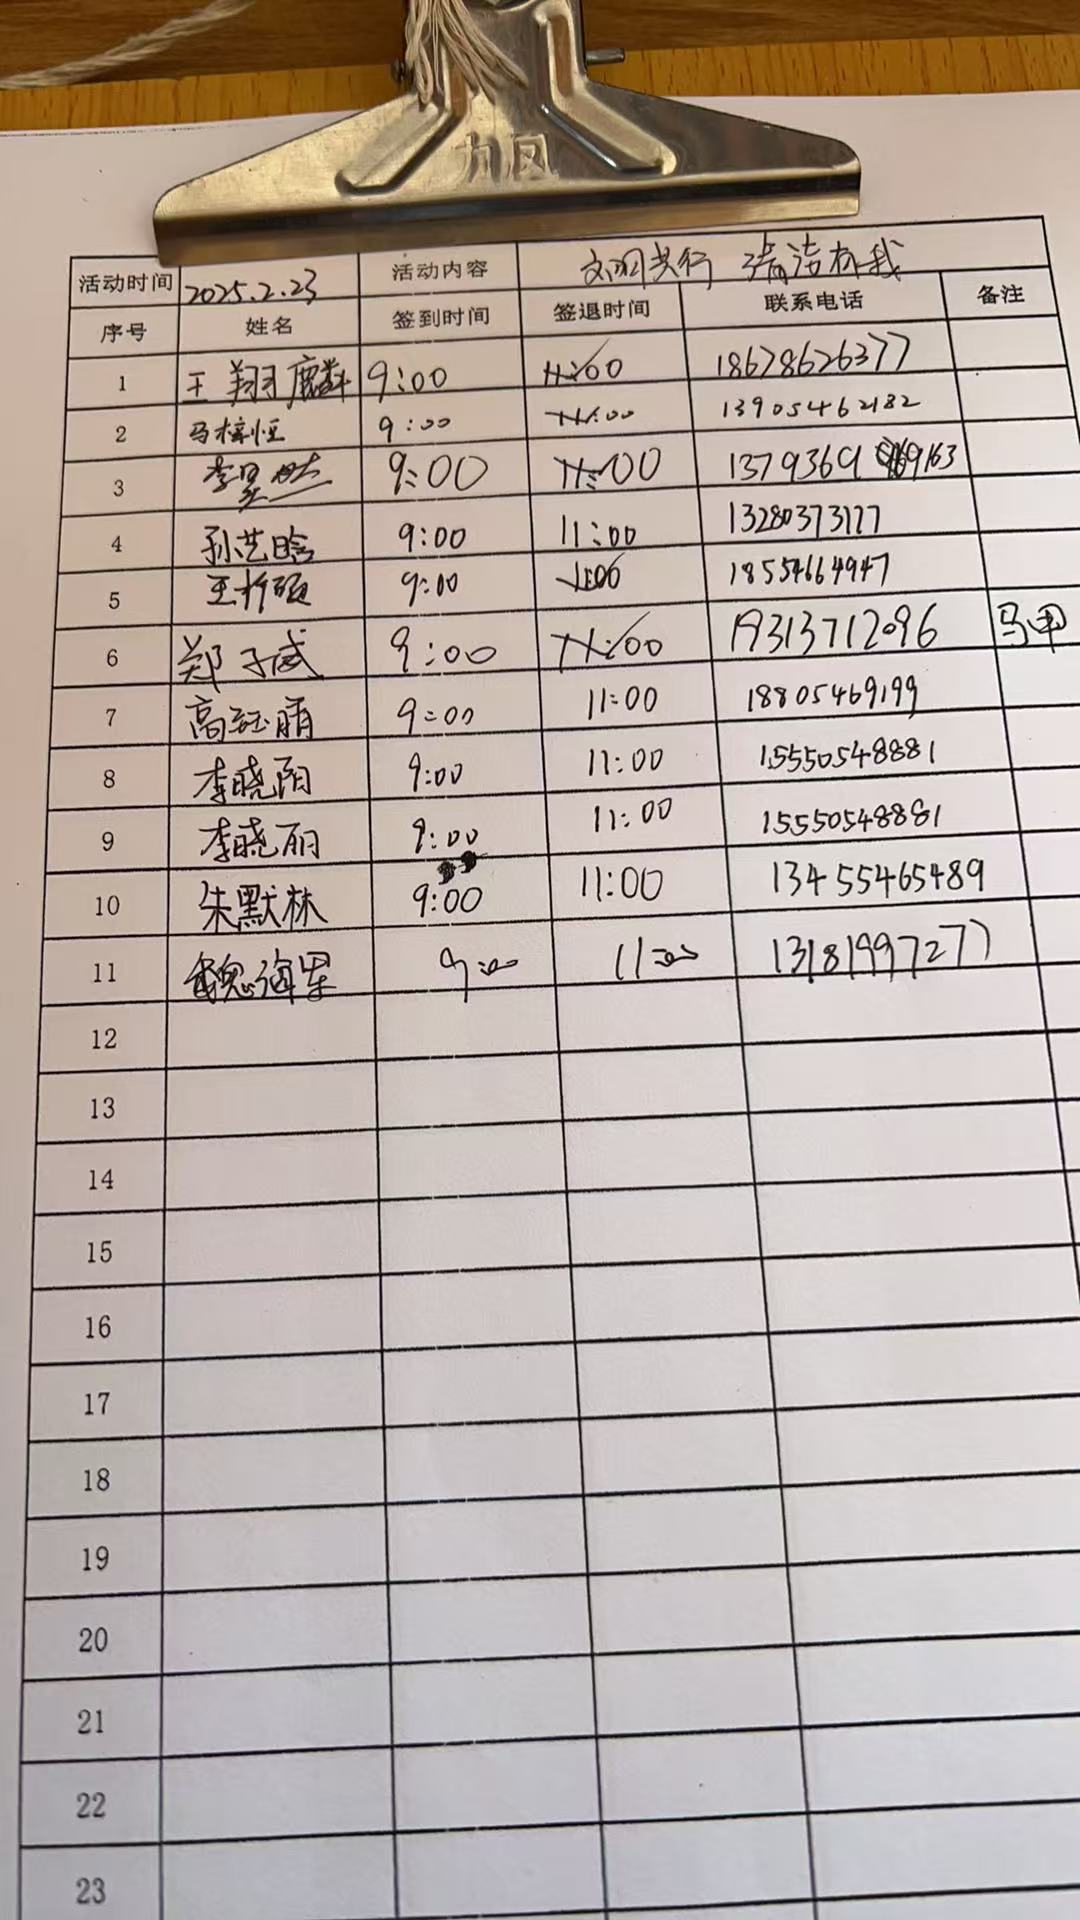 力风
活动时间 2025.2.23 活动内容 文明共行 清洁有我
序号 姓名 签到时间 签退时间 联系电话 备注
1 王翔麟 9:00 11:00 18678626377
2 马梓恒 9:00 11:00 13905462182
3 李昊然 9:00 11:00 1379369 9163
4 孙艺晗 9:00 11:00 13280373177
5 9:00 11:00 18554664947
6 郑子威 9:00 11:00 19313712096 马甲
7 高钰晴 9:00 11:00 18805469199
8 李晓阳 9:00 11:00 15550548881
9 李晓丽 9:00 11:00 15550548881
10 朱默林 9:00 11:00 13455465489
11 魏海军 9:00 11:00 13181997277
12
13
14
15
16
17
18
19
20
21
22
23